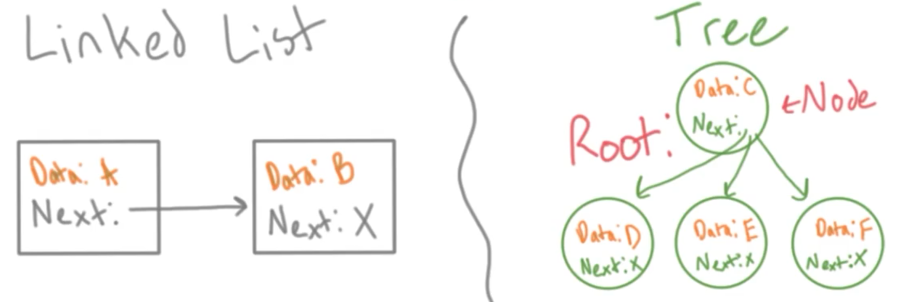 Linked List
Data: A
Next:
Data: B
Next: X
Tree
Root:
Data: C
Next:
←Node
Data: D
Next: X
Data: E
Next: X
Data: F
Next: X